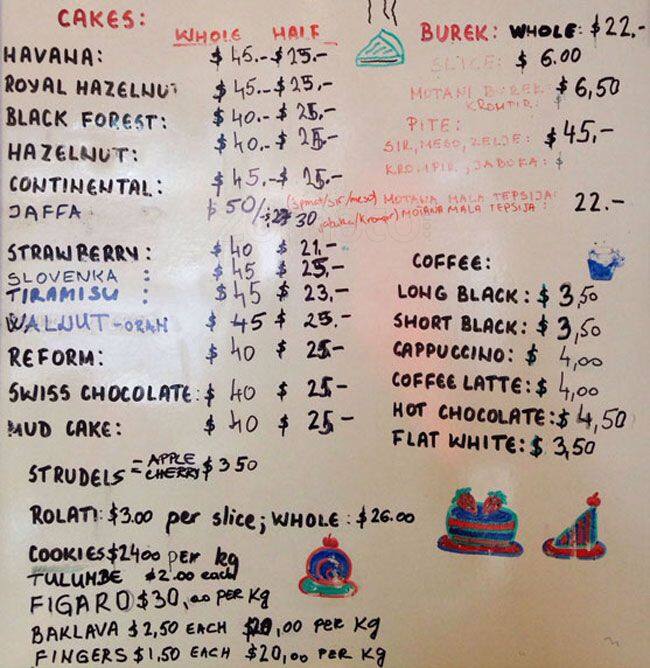 CAKES:
WHOLE HALF
HAVANA: $45.- $25.-
ROYAL HAZELNUT $45.- $25.-
BLACK FOREST: $40.- $25.-
HAZELNUT: $40.- $25.-
CONTINENTAL: $45.- $25.-
JAFFA $50/ 30
STRAWBERRY: $40 $21.-
SLOVENKA : $45 $25.-
TIRAMISU : $45 $23.-
WALNUT-ORAH $45 $25.-
REFORM: $40 $25-
SWISS CHOCOLATE: $40 $25-
MUD CAKE: $40 $25-
STRUDELS = APPLE
CHERRY $3 50
ROLATI: $3.00 per slice; WHOLE: $26.00
COOKIES $2400 PER kg
TULUMBE $2.00 each
FIGARO $30,00 PER Kg
BAKLAVA $2,50 EACH $20,00 PER Kg
FINGERS $1,50 EACH $20,00 PER Kg
BUREK: WHOLE: $22.-
SLICE: $6.00
MOTANI BUREK $6,50
KROMPIR: $
PITE:
SIR, MESO, ZELJE: $45,-
KROMPIR, JABUKA: $
(spinat/sir/meso) MOTANA MALA TEPSIJA: 22.-
jabuka/Krompir) MOTANA MALA TEPSIJA:
COFFEE:
LONG BLACK: $3,50
SHORT BLACK: $3,50
CAPPUCCINO: $4,00
COFFEE LATTE: $4,00
HOT CHOCOLATE: $4,50
FLAT WHITE: $3,50